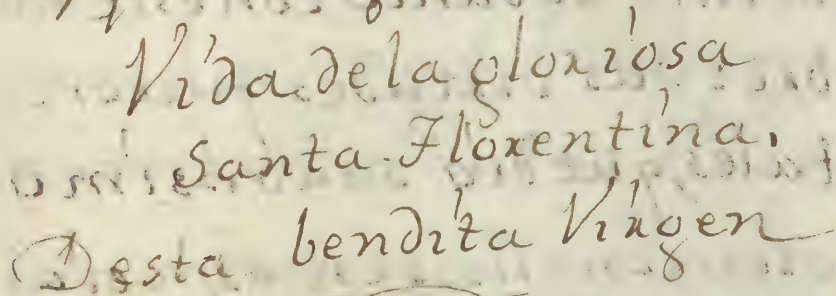 Vida de la gloriosa
Santa Florentina.
Desta bendita Virgen